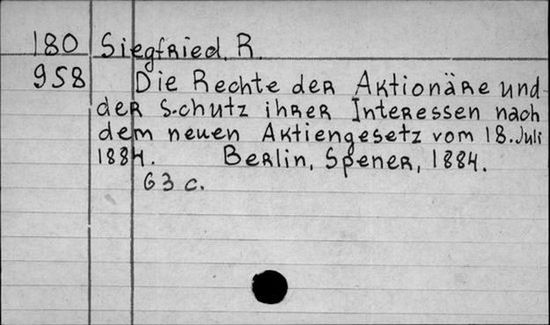 180 Siegfried, R.
958 Die Rechte der Aktionäre und
der Schutz ihrer Interessen nach
dem neuen Aktiengesetz vom 18. Juli
1884. Berlin, Spener, 1884.
63 c.